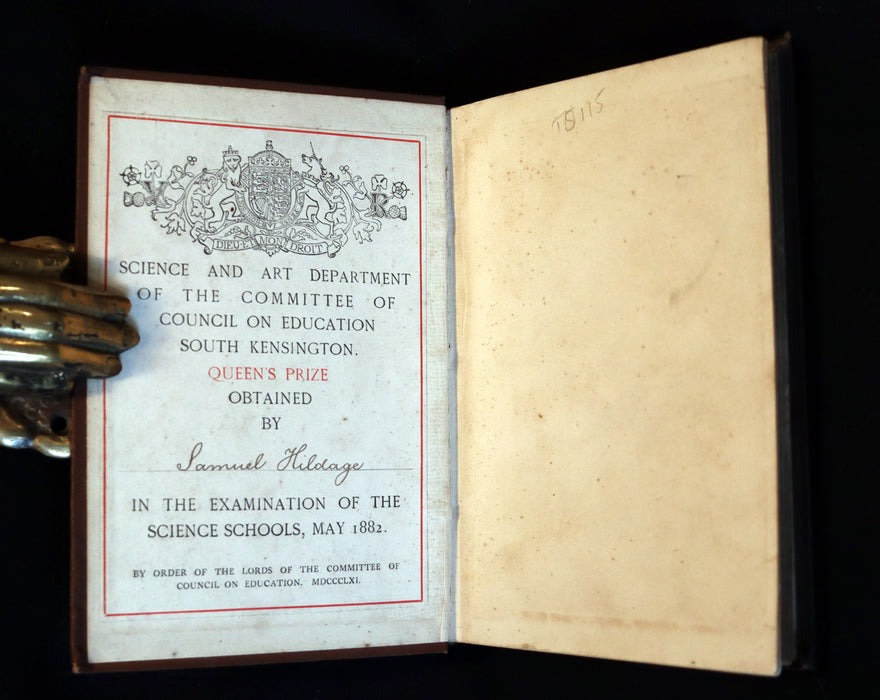 V R
DIEU ET MON DROIT
SCIENCE AND ART DEPARTMENT
OF THE COMMITTEE OF
COUNCIL ON EDUCATION
SOUTH KENSINGTON.
QUEEN'S PRIZE
OBTAINED
BY
Samuel Hildage
IN THE EXAMINATION OF THE
SCIENCE SCHOOLS, MAY 1882.
BY ORDER OF THE LORDS OF THE COMMITTEE OF
COUNCIL ON EDUCATION, MDCCCLXI.